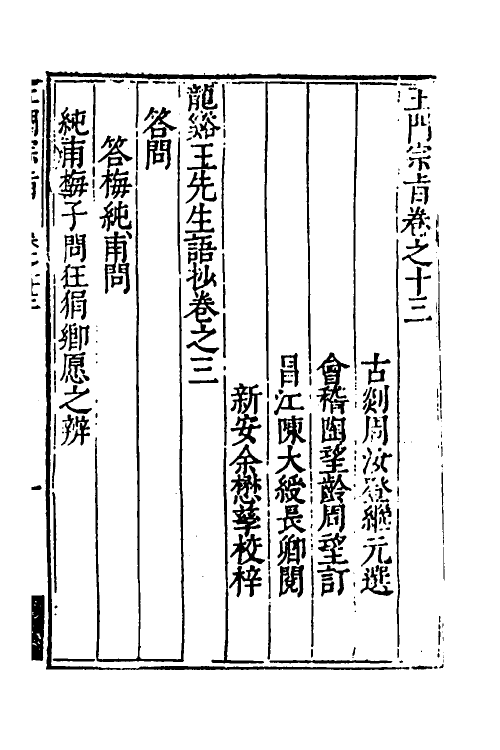 王門宗旨卷之十三
古剡周汝登繼元選
會稽陶望齡周望訂
旴江陳大綬長卿閱
新安余懋孳校梓
龍谿王先生語抄卷之三
答問
答梅純甫問
純甫梅子問狂狷鄉愿之辨
王門宗旨 卷之十三
一